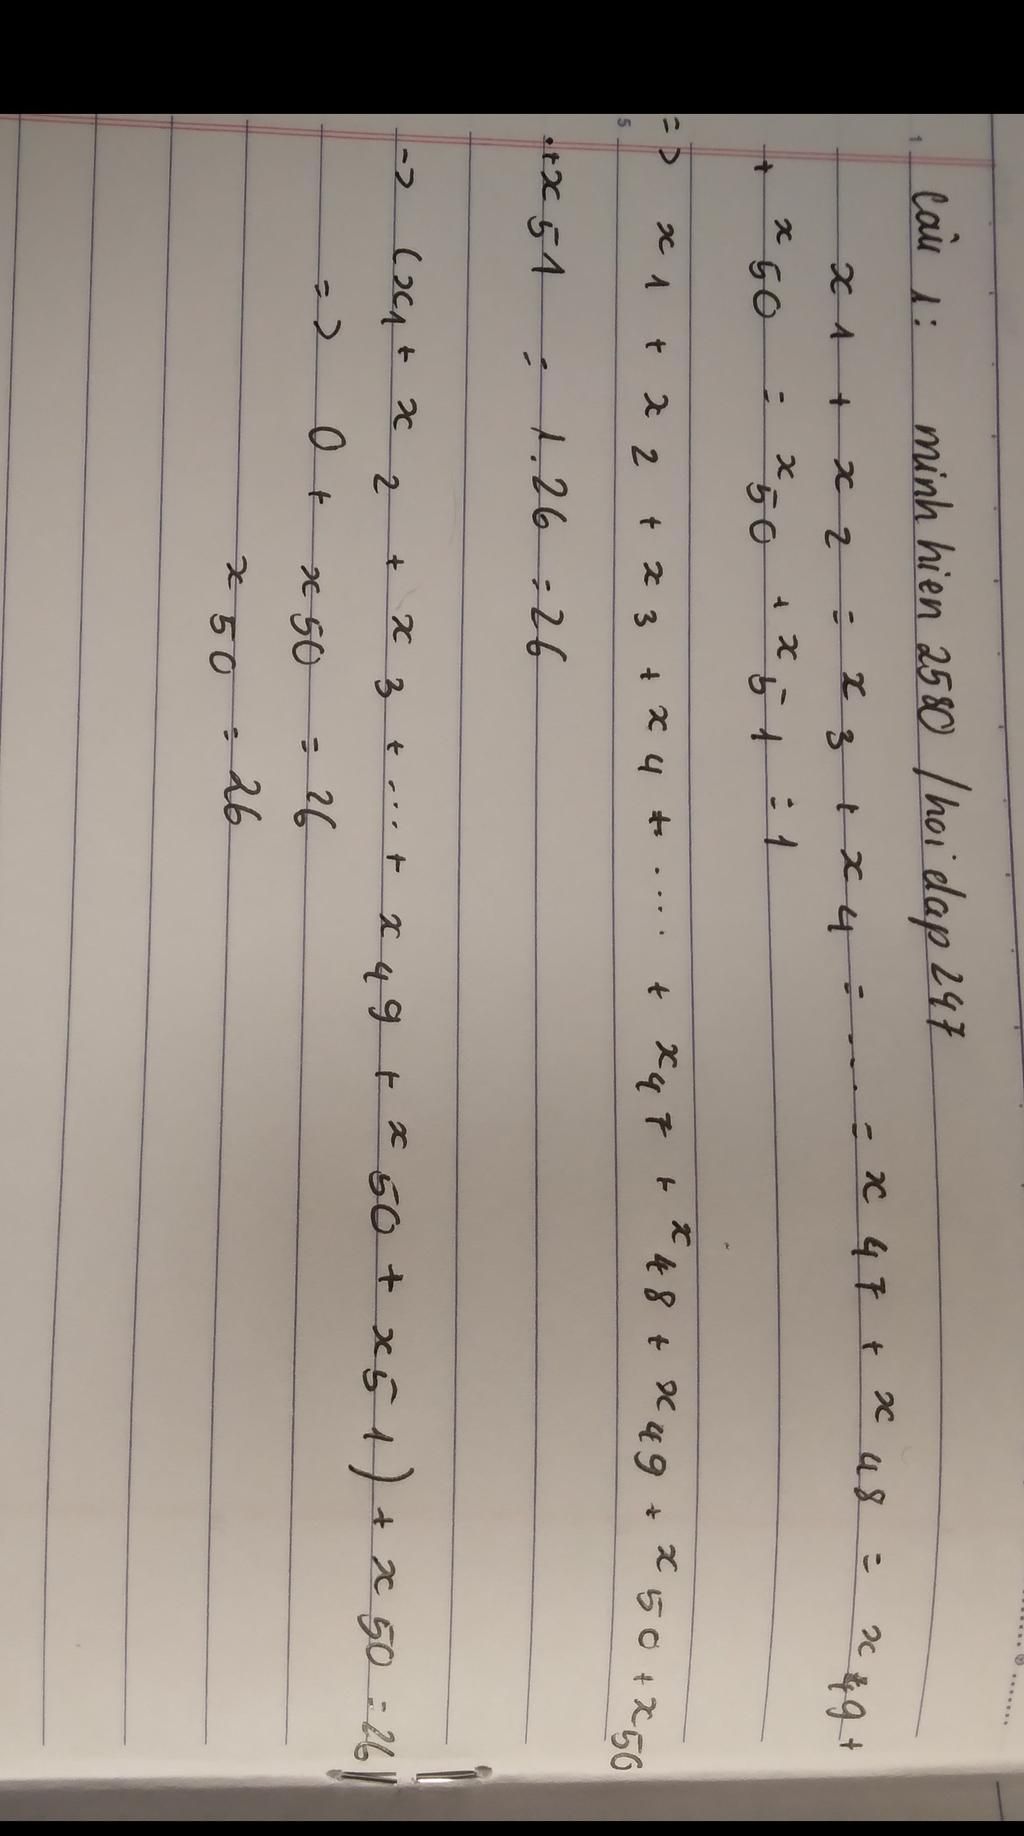 Câu 1: minhhien2580 /hoidap247
x1 + x2 = x3 + x4 = .... = x47 + x48 = x49 +
+ x50 = x50 + x51 = 1
=> x1 + x2 + x3 + x4 + .... + x47 + x48 + x49 + x50 + x50
+x51 = 1.26 = 26
-> (x1 + x2 + x3 + ... + x49 + x50 + x51) + x50 = 26
=> 0 + x50 = 26
x50 = 26